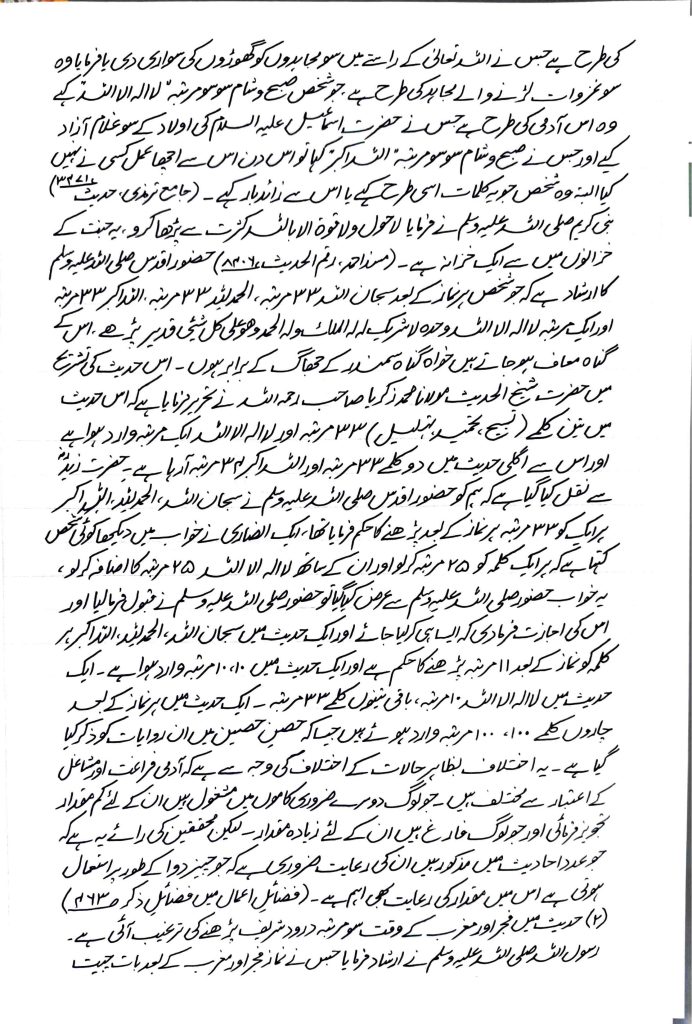 کی طرح ہے جس نے اللہ تعالیٰ کے راستے میں سو مجاہدوں کو گھوڑوں کی سواری دی یا فرمایا وہ
سو غزوات لڑنے والے مجاہد کی طرح ہے۔ جو شخص صبح و شام سو سو مرتبہ "لا الہ الا اللہ" کہے
وہ اس آدمی کی طرح ہے جس نے حضرت اسماعیل علیہ السلام کی اولاد کے سو غلام آزاد
کیے اور جس نے صبح و شام سو سو مرتبہ "اللہ اکبر" کہا تو اس دن اس سے اچھا عمل کسی نے نہیں
کیا البتہ وہ شخص جو یہ کلمات اسی طرح کہے یا اس سے زائد بار کہے۔ (جامع ترمذی، حدیث ۳۴۷۱)
نبی کریم صلی اللہ علیہ وسلم نے فرمایا لا حول ولا قوۃ الا باللہ کثرت سے پڑھا کرو، یہ جنت کے
خزانوں میں سے ایک خزانہ ہے۔ (مسند احمد، رقم الحدیث، ۸۴۰۶) حضور اقدس صلی اللہ علیہ وسلم
کا ارشاد ہے کہ جو شخص ہر نماز کے بعد سبحان اللہ ۳۳ مرتبہ، الحمد للہ ۳۳ مرتبہ، اللہ اکبر ۳۳ مرتبہ
اور ایک مرتبہ لا الہ الا اللہ وحدہ لا شریک لہ لہ الملک ولہ الحمد وھو علی کل شیئی قدیر پڑھے، اس کے
گناہ معاف ہو جاتے ہیں خواہ گناہ سمندر کے جھاگ کے برابر ہوں۔ اس حدیث کی تشریح
میں حضرت شیخ الحدیث مولانا محمد زکریا صاحب رحمہ اللہ نے تحریر فرمایا ہے کہ اس حدیث
میں تین کلمے (تسبیح، تحمید، تہلیل) ۳۳ مرتبہ اور لا الہ الا اللہ ایک مرتبہ وارد ہوا ہے
اور اس سے اگلی حدیث میں دو کلمے ۳۳ مرتبہ اور اللہ اکبر ۳۴ مرتبہ آ رہا ہے۔ حضرت زیدؓ
سے نقل کیا گیا ہے کہ ہم کو حضور اقدس صلی اللہ علیہ وسلم نے سبحان اللہ، الحمد للہ، اللہ اکبر
ہر ایک کو ۳۳ مرتبہ ہر نماز کے بعد پڑھنے کا حکم فرمایا تھا، ایک انصاری نے خواب میں دیکھا کوئی شخص
کہتا ہے کہ ہر ایک کلمہ کو ۲۵ مرتبہ کر لو اور ان کے ساتھ لا الہ الا اللہ ۲۵ مرتبہ کا اضافہ کر لو،
یہ خواب حضور صلی اللہ علیہ وسلم سے عرض کیا گیا تو حضور صلی اللہ علیہ وسلم نے قبول فرما لیا اور
اس کی اجازت فرما دی کہ ایسا ہی کر لیا جائے اور ایک حدیث میں سبحان اللہ، الحمد للہ، اللہ اکبر ہر
کلمہ کو نماز کے بعد ۱۱ مرتبہ پڑھنے کا حکم ہے اور ایک حدیث میں ۱۰، ۱۰ مرتبہ وارد ہوا ہے۔ ایک
حدیث میں لا الہ الا اللہ ۱۰ مرتبہ، باقی تینوں کلمے ۳۳ مرتبہ۔ ایک حدیث میں ہر نماز کے بعد
چاروں کلمے ۱۰۰، ۱۰۰ مرتبہ وارد ہوئے ہیں جیسا کہ حصن حصین میں ان روایات کو ذکر کیا
گیا ہے۔ یہ اختلاف بظاہر حالات کے اختلاف کی وجہ سے ہے کہ آدمی فراغت اور مشاغل
کے اعتبار سے مختلف ہیں۔ جو لوگ دوسرے ضروری کاموں میں مشغول ہیں ان کے لئے کم مقدار
تجویز فرمائی اور جو لوگ فارغ ہیں ان کے لئے زیادہ مقدار۔ لیکن محققین کی رائے یہ ہے کہ
جو عدد احادیث میں مذکور ہیں ان کی رعایت ضروری ہے کہ جو چیز دوا کے طور پر استعمال
ہوتی ہے اس میں مقدار کی رعایت بھی اہم ہے۔ (فضائل اعمال میں فضائل ذکر ص ۴۶۳)
(۲) حدیث میں فجر اور مغرب کے وقت سو مرتبہ درود شریف پڑھنے کی ترغیب آئی ہے۔
رسول اللہ صلی اللہ علیہ وسلم نے ارشاد فرمایا جس نے نماز فجر اور مغرب کے بعد بات چیت